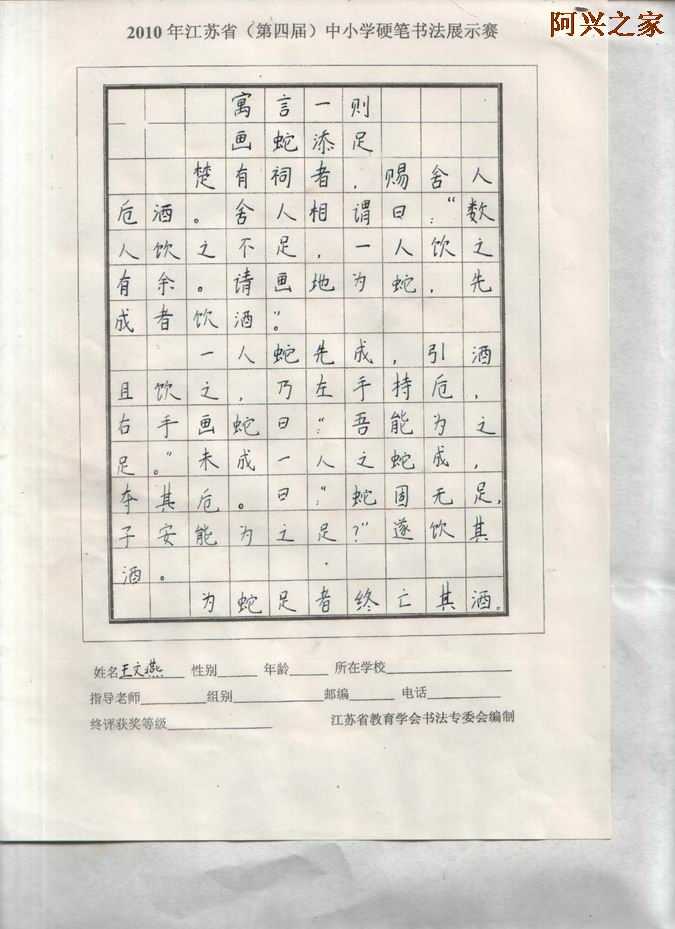 阿兴之家
2010 年江苏省（第四届）中小学硬笔书法展示赛
寓言一则
画蛇添足
楚有祠者，赐舍人
卮酒。舍人相谓曰：“数
人饮之不足，一人饮之
有余。请画地为蛇，先
成者饮酒”。
一人蛇先成，引酒
且饮之，乃左手持卮，
右手画蛇曰：“吾能为之
足。”未成一人之蛇成，
夺其卮。曰：“蛇固无足，
子安能为之足？”遂饮其
酒。
为蛇足者终亡其酒。
姓名王文燕 性别 年龄 所在学校
指导老师 组别 邮编 电话
终评获奖等级 江苏省教育学会书法专委会编制